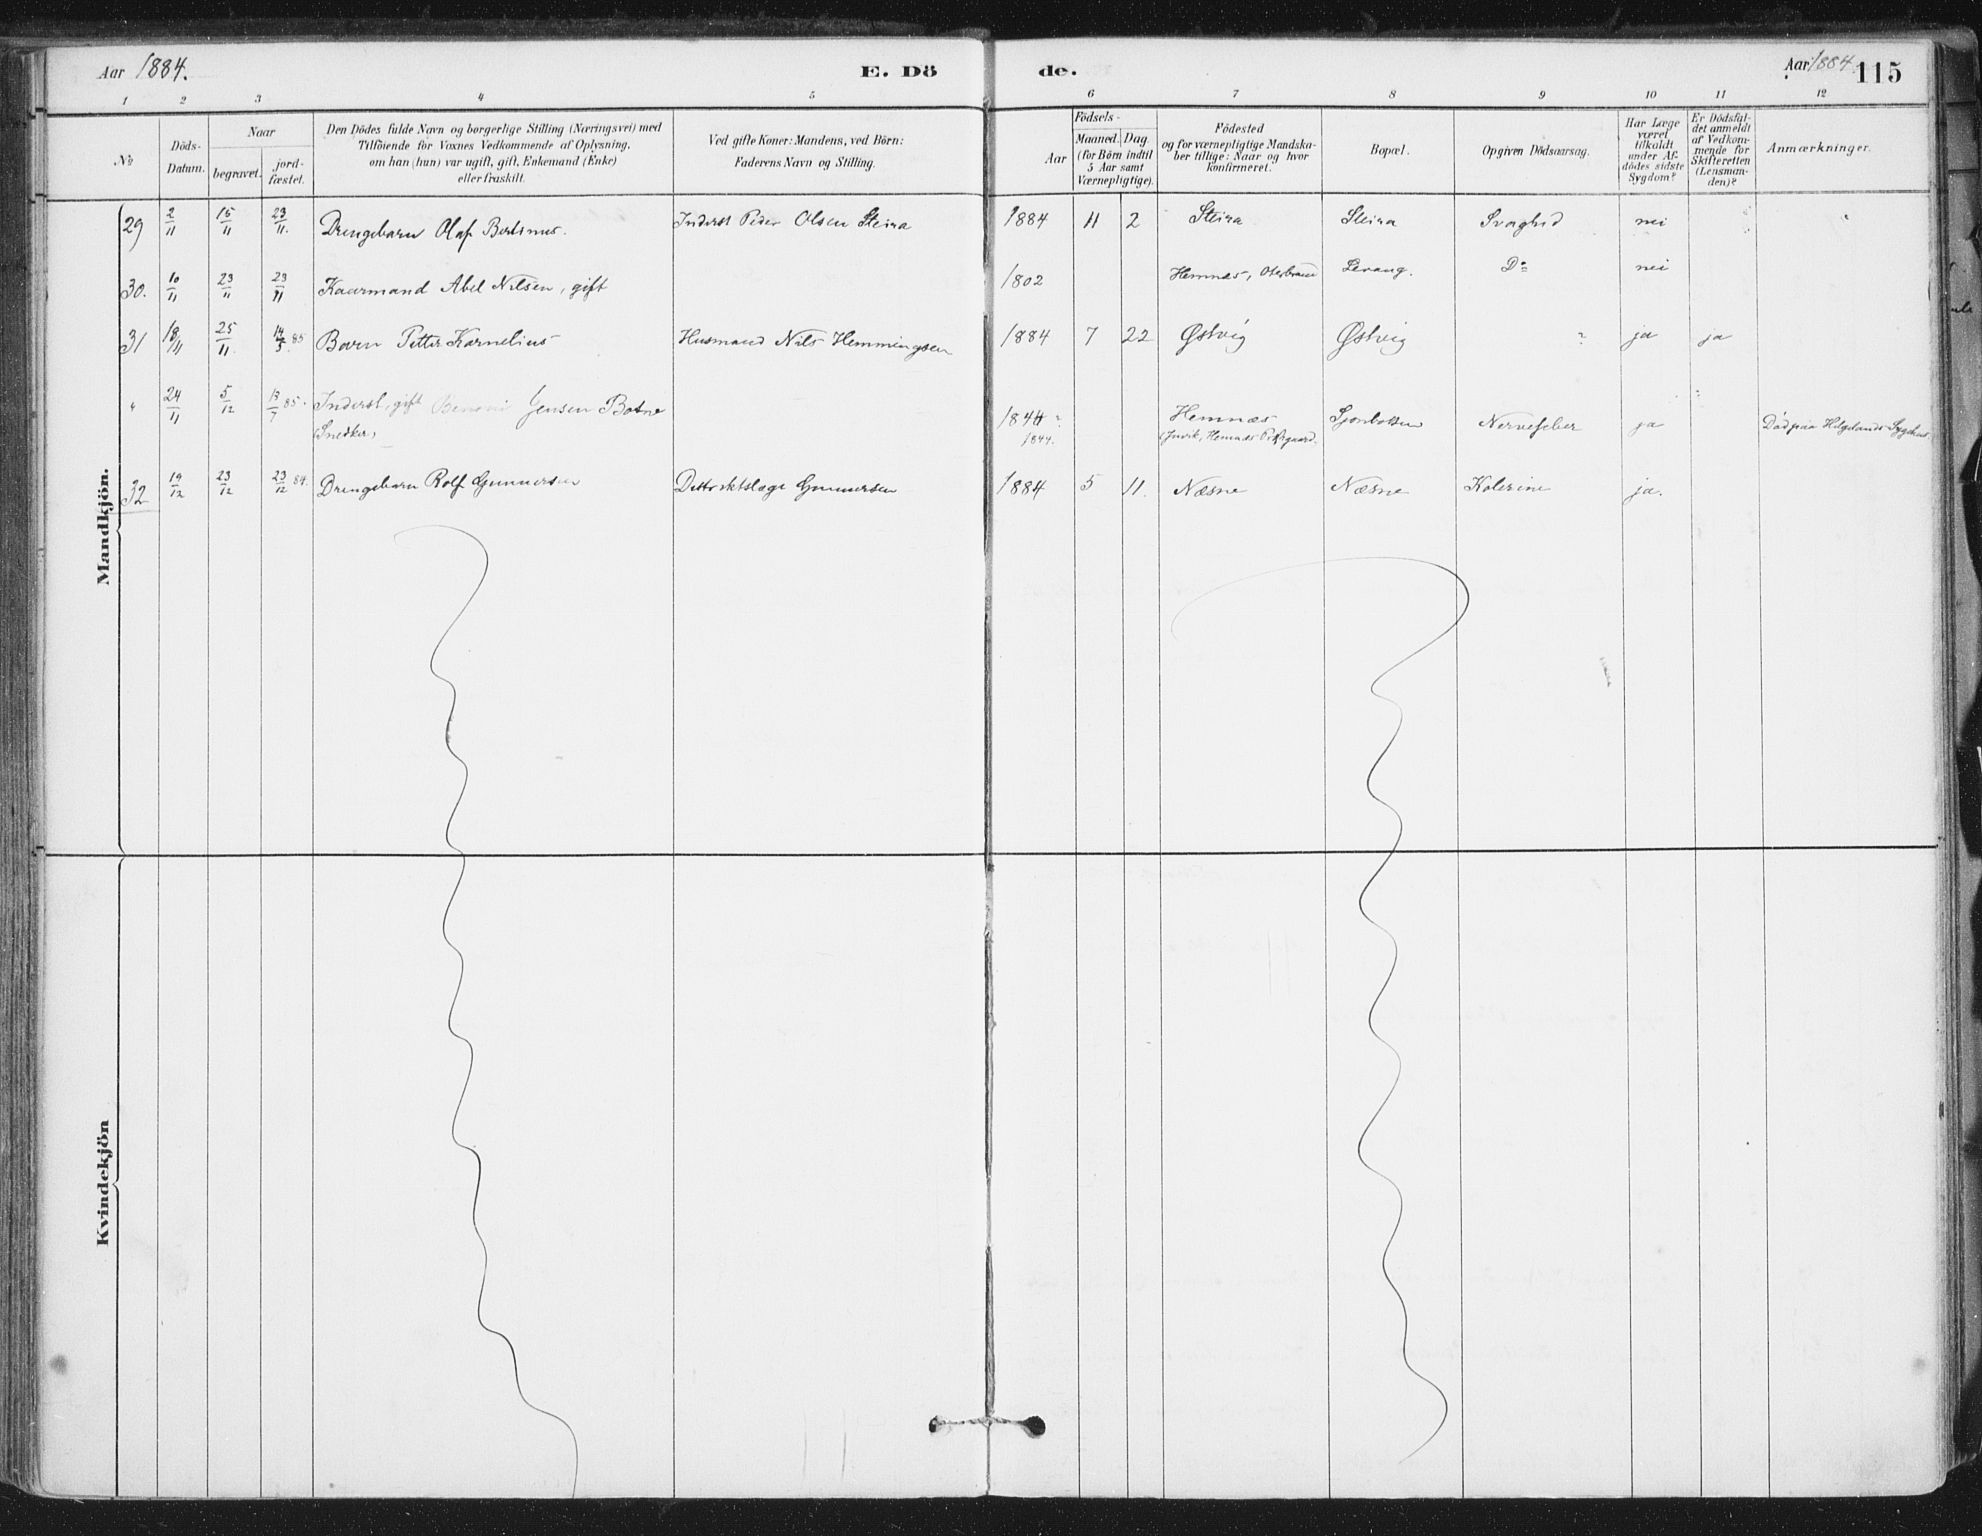 Aar 1884. E. Dö
de. Aar 1884. 115
1 2 3 4 5 6 7 8 9 10 11 12
No
Döds-
Datum.
Naar
begravet.
jord-
fæstet.
Den Dödes fulde Navn og borgerlige Stilling (Næringsvei) med
Tilföiende for Voxnes Vedkommende af Oplysning,
om han (hun) var ugift, gift, Enkemand (Enke)
eller fraskilt.
Ved gifte Koner: Mandens, ved Börn:
Faderens Navn og Stilling.
Födsels-
Aar
Maaned. Dag
(for Börn indtil
5 Aar samt
Værnepligtige).
Födested
og for værnepligtige Mandska-
ber tillige: Naar og hvor
konfirmeret.
Bopæl.
Opgiven Dödsaarsag.
Har Læge
været
tilkaldt
under Af-
dödes sidste
Sygdom?
Er Dödsfal-
det anmeldt
af Vedkom-
mende for
Skifteretten
(Lensman-
den)?
Anmærkninger.
Mandkjön.
29 2/11 15/11 23/11. Drengebarn Olaf Bertinus. Inderst Peder Olsen Steira 1884 11 2 Steira Steira Svaghed nei
30. 10/11 23/11 23/11 Kaarmand Abel Nilsen, gift 1802 Hemnæs, Levang. Do nei
31 18/11 25/11. 14/5 85 Barn Petter Kornelius Husmand Nils Hemmingsen 1884 7 22 Østvig Østvig ? ja ja
" 24/11 5/12 13/7 85. Inderst, gift Benoni Jensen Botne 1844 ? Hemnæs Sjonbotten Nervefeber ja Död paa Helgelands Sygehus.
(Snedker) 1844. (Hemnæs
32 19/12 23/12 23/12 84. Drengebarn Rolf Gunnersen Distriktslæge Gunnersen 1884 5 11. Næsne Næsne Kolerine ja.
Kvindekjön